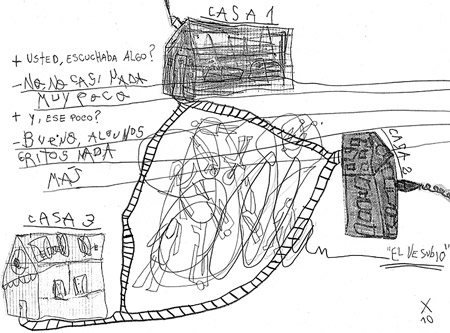 CASA 1
+ USTED, ESCUCHABA ALGO?
- NO, NO CASI NADA
MUY POCO
+ Y, ESE POCO?
- BUENO, ALGUNOS
GRITOS NADA
MAS
CASA 2
CASA 3
"EL VESUBIO"
X
10